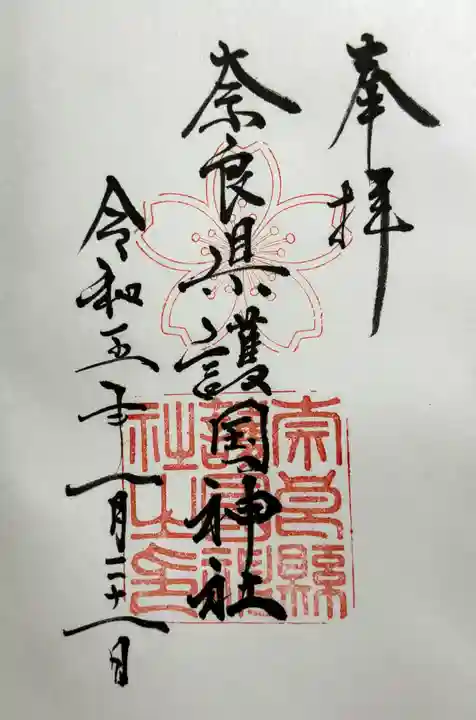 奉拝
奈良県護国神社
令和五年八月二十八日
奈良縣
護國神
社之印